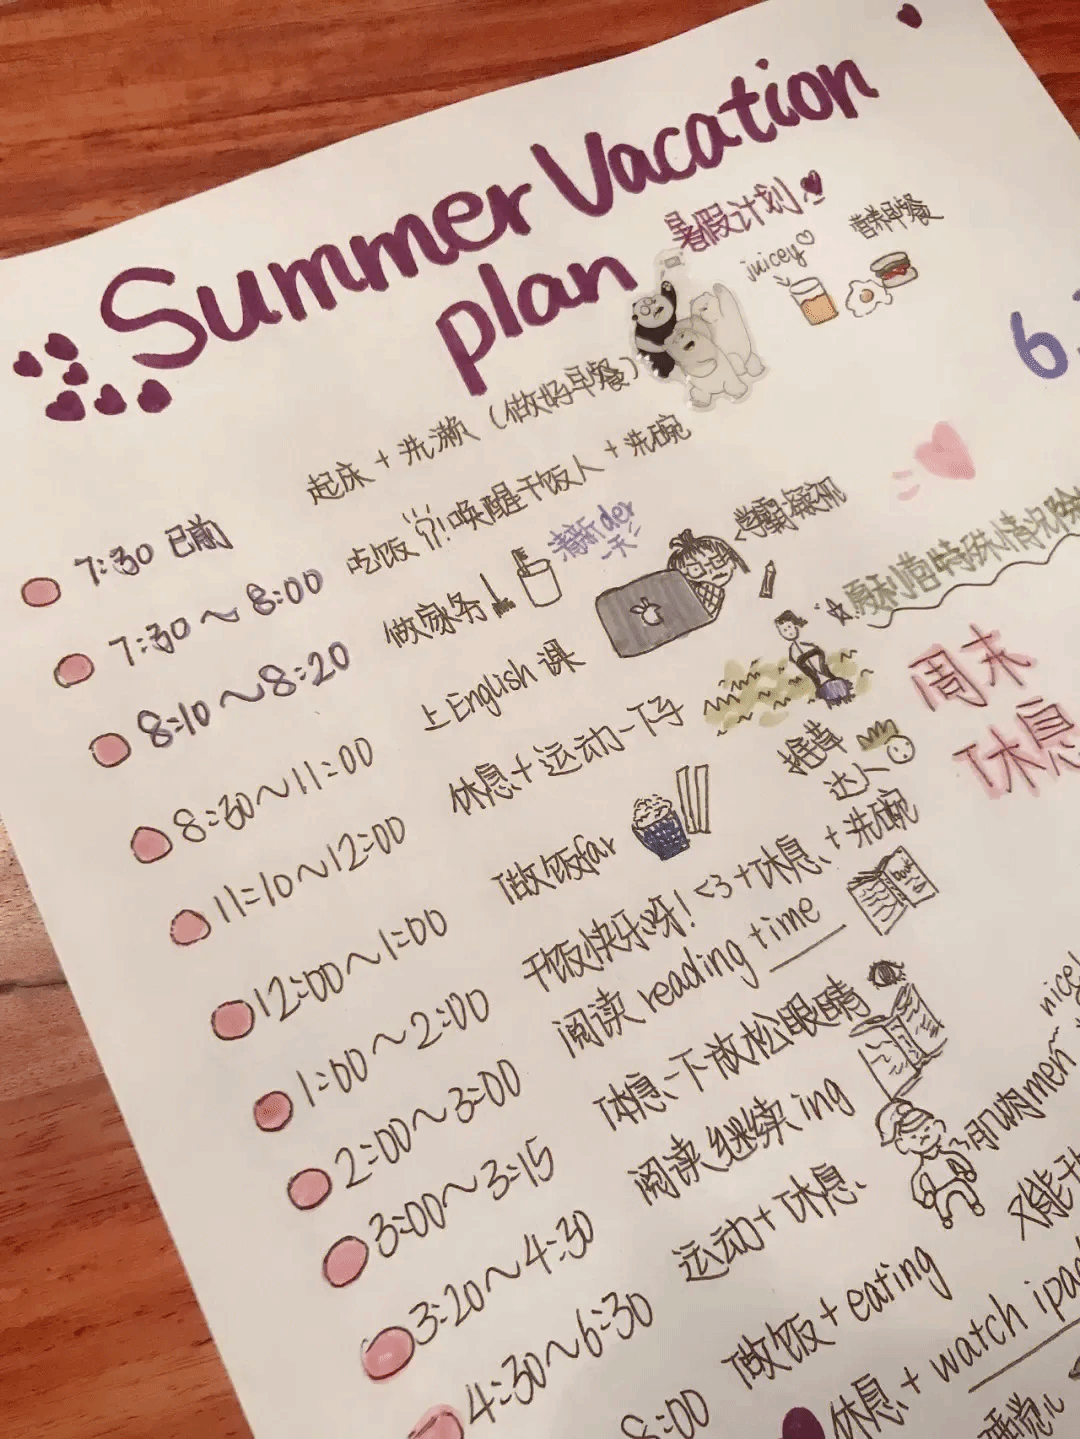 Summer Vacation
plan
暑假计划
juicey
营养早餐
6.
7:30 已前 起床 + 洗漱 (做好早餐)
7:30~8:00 吃饭 唤醒干饭人 + 洗碗
8:10~8:20 做家务
清新der
一天
8:30~11:00 上English 课
学霸凝视
11:10~12:00 休息 + 运动一下子
原则菂特殊情况除
周末
休息
12:00~1:00 做饭far
推草
达人
1:00~2:00 干饭快乐呀! <3 + 休息 + 洗碗
2:00~3:00 阅读 reading time
3:00~3:15 休息一下放松眼睛
3:20~4:30 阅读继续 ing
4:30~6:30 运动 + 休息
肌肉men
nice!
又能干
8:00 做饭 + eating
休息 + watch ipad
睡觉儿